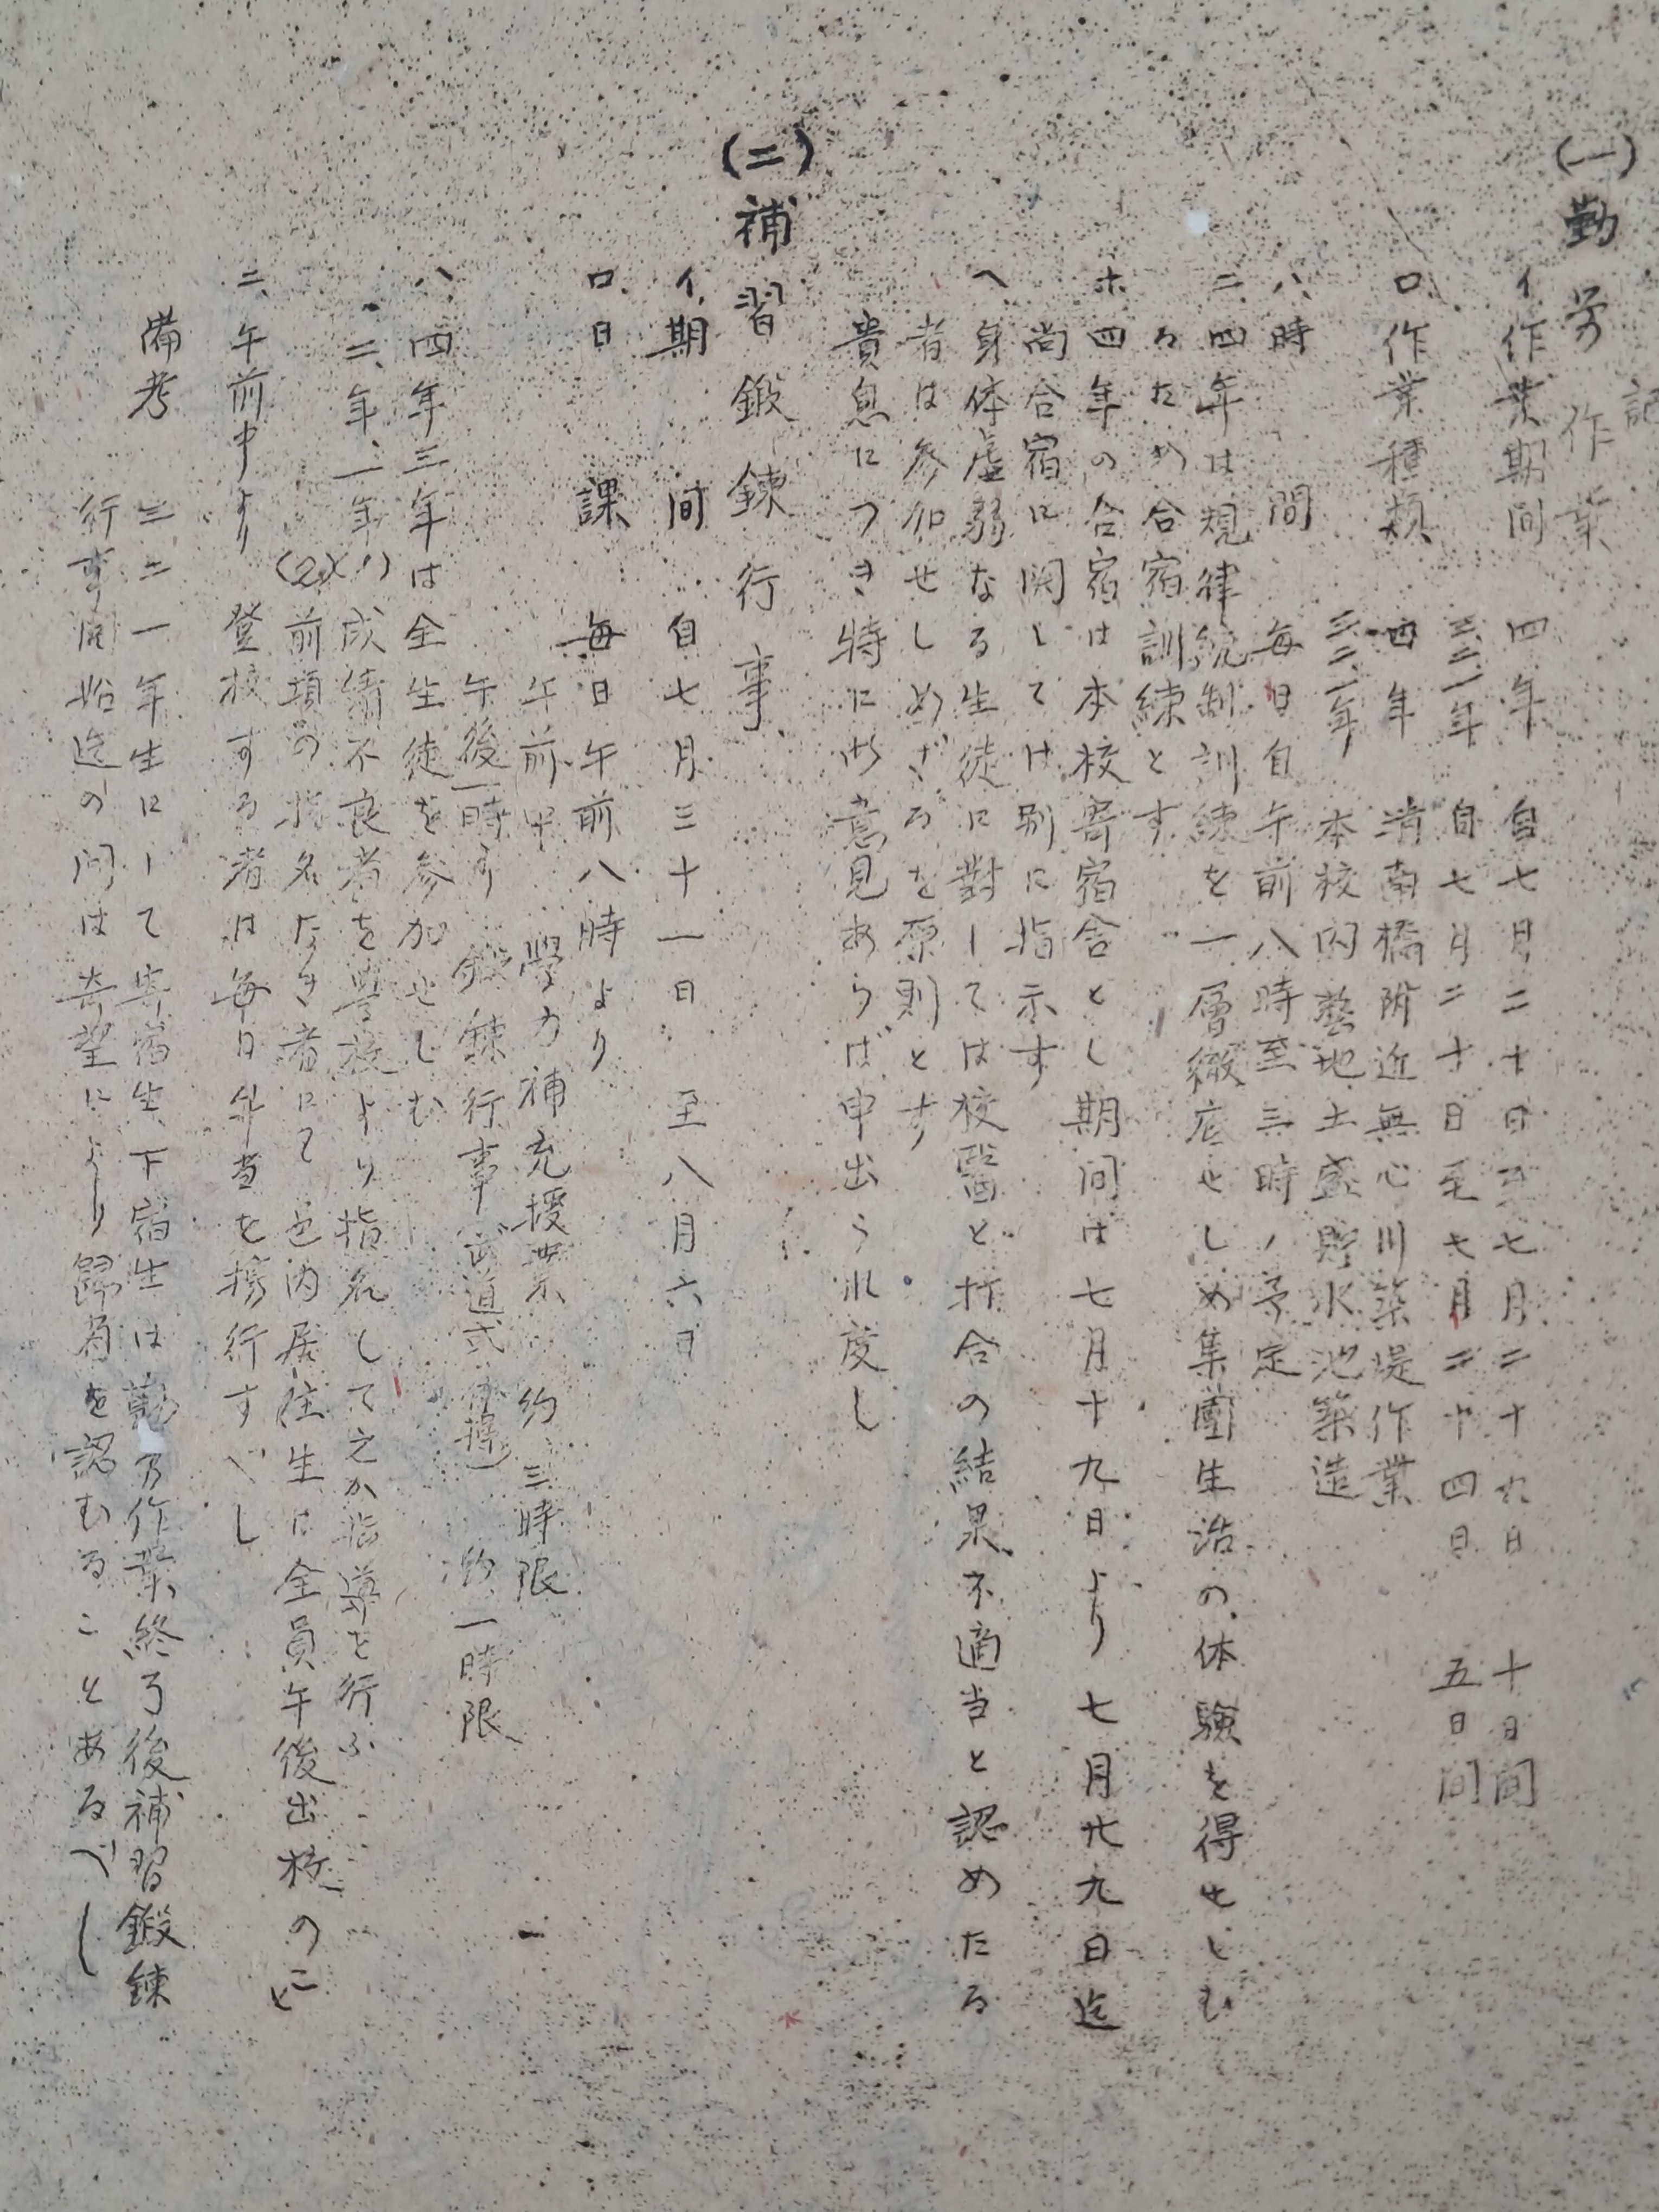 記
(一)勤労作業
イ、作業期間 四年 自七月二十日至七月二十九日 十日間
三、二、一年 自七月二十日至七月二十四日 五日間
ロ、作業種類 四年 清南橋附近無心川築堤作業
三、二、一年 本校内藝地土盛貯水池築造
ハ、時間 毎日自午前八時至三時ノ予定
ニ、四年は規律統制訓練を一層緻底せしめ集團生活の体験を得せしむ
るため合宿訓練とす
ホ、四年の合宿は本校寄宿舎とし期間は七月十九日より七月廿九日迄
尚合宿に関しては別に指示す
ヘ、身体虚弱なる生徒に對しては校醫と打合の結果不適当と認めたる
者は参加せしめざるを原則とす
貴息につき特に御意見あらば申出られ度し
(二)補習鍛錬行事
イ、期間 自七月三十一日 至八月六日
ロ、日課 毎日午前八時より
午前中 學力補充授業 約三時限
午後一時より 鍛錬行事 約一時限
ハ、四年三年は全生徒を参加せしむ
二、年、一年 (1)成績不良者を學校より指名して之か指導を行ふ
(2)前項の指名なき者にて邑内居住生は全員午後出校のこと
ニ、午前中より登校する者は毎日弁当を携行すべし
備考 三二一年生にして寄宿生、下宿生は勤労作業終了後補習鍛錬
行事開始迄の間は希望により歸省を認むることあるべし